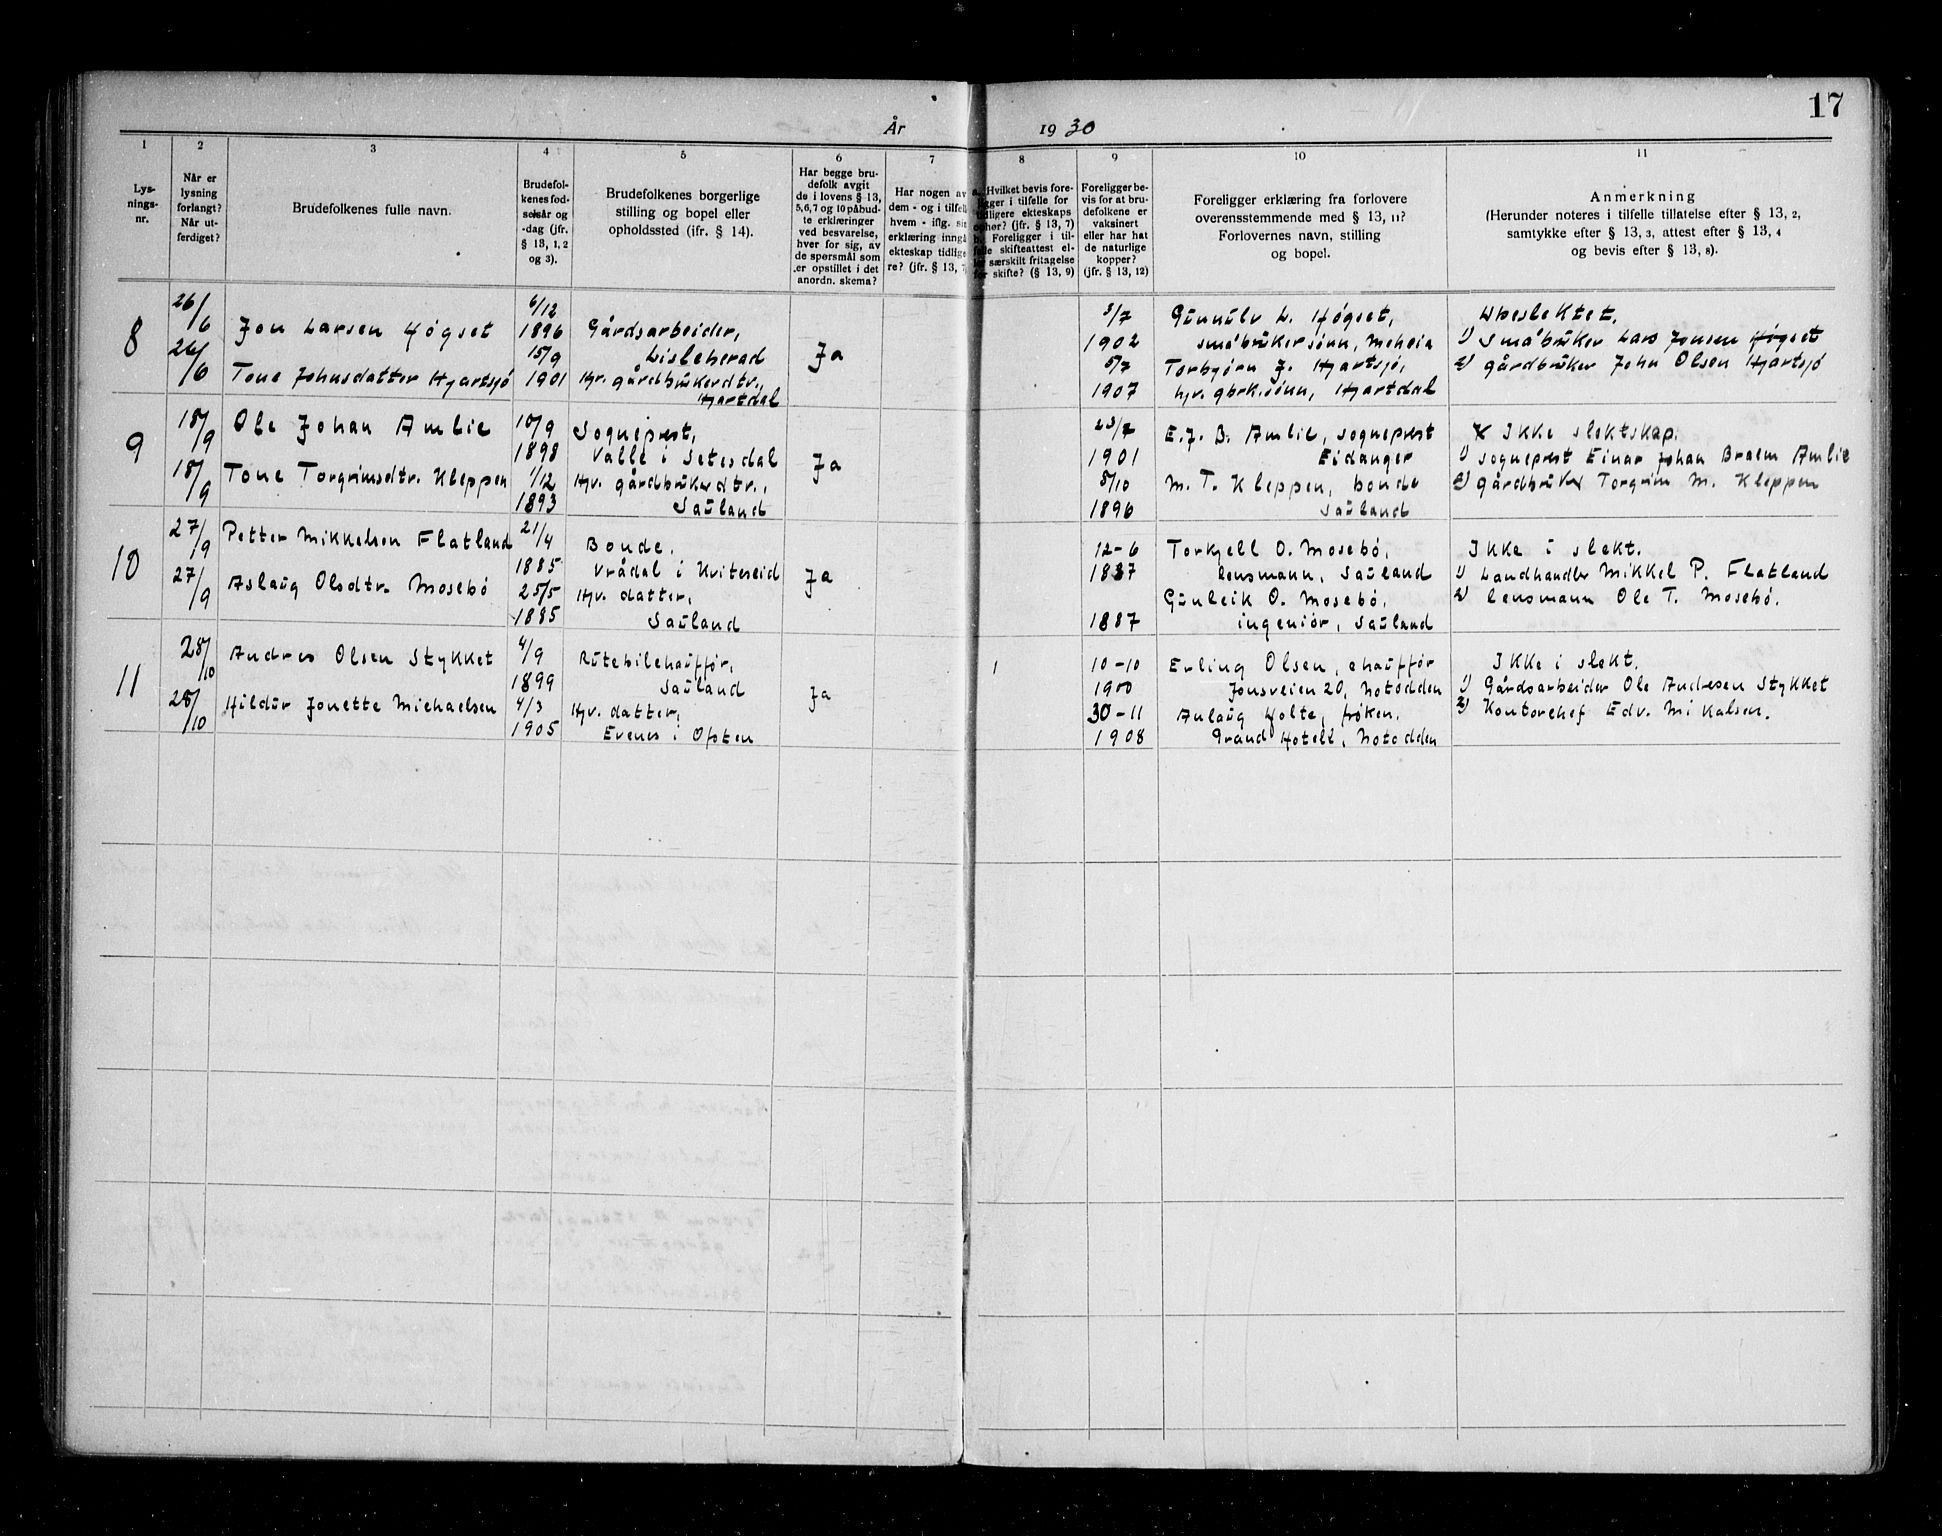 17
År 1930
1 2 3 4 5 6 7 8 9 10 11
Lys-
nings-
nr.
Når er
lysning
forlangt?
Når ut-
ferdiget?
Brudefolkenes fulle navn.
Brudefol-
kenes fød-
selsår og
-dag (jfr.
§ 13, 1, 2
og 3).
Brudefolkenes borgerlige
stilling og bopel eller
opholdssted (ifr. § 14).
Har begge bru-
defolk avgit
de i lovens § 13,
5, 6, 7 og 10 påbud-
te erklæringer
ved besvarelse,
hver for sig, av
de spørsmål som
er opstillet i det
anordn. skema?
Har nogen av
dem - og i tilfelle
hvem - iflg. sin
erklæring inngå
ekteskap tidlige-
re? (jfr. § 13, 7)
a. Hvilket bevis fore-
ligger i tilfelle for
tidligere ekteskaps
ophør? (jfr. § 13, 7)
b. Foreligger i til-
felle skifteattest el-
ler særskilt fritagelse
for skifte? (§ 13, 9)
Foreligger be-
vis for at bru-
defolkene er
vaksinert
eller har hat
de naturlige
kopper?
(jfr. § 13, 12)
Foreligger erklæring fra forlovere
overensstemmende med § 13, 11?
Forlovernes navn, stilling
og bopel.
Anmerkning
(Herunder noteres i tilfelle tillatelse efter § 13, 2,
samtykke efter § 13, 3, attest efter § 13, 4
og bevis efter § 13, 8).
8
26/6
26/6
Jon Larsen Høgset
Tone Johnsdatter Hjartsjø
6/12
1896
15/9
1901
Gårdsarbeider,
Lisleherad
Hjv. gårdbrukerdtr.,
Hjartdal
Ja
3/7
1902
5/7
1907
Gunnulv L. Høgset,
småbrukersønn, Meheia
Torbjørn J. Hjartsjø,
hjv. gbrk.sønn, Hjartdal
Ubeslektet.
1) Småbruker Lars Jonsen Høgset
2) gårdbruker John Olsen Hjartsjø
9
18/9
18/9
Ole Johan Amlie
Tone Torgrimsdtr. Kleppen
10/9
1898
1/12
1893
Sogneprest,
Valle i Setesdal
Hjv. gårdbrukerdtr.,
Sauland
Ja
23/7
1901
8/10
1896
E. J. B. Amlie, sogneprest
Eidanger
M. T. Kleppen, bonde
Sauland
Ikke slektskap.
1) sogneprest Einar Johan Braem Amlie
2) gårdbruker Torgrim M. Kleppen
10
27/9
27/9
Petter Mikkelsen Flatland
Aslaug Olsdtr. Mosebø
21/4
1885
25/5
1885
Bonde,
Vrådal i Kviteseid
Hjv. datter,
Sauland
Ja
12-6
1887
1887
Torkjell O. Mosebø,
lensmann, Sauland
Gunleik O. Mosebø,
ingeniør, Sauland
Ikke i slekt.
1) Landhandler Mikkel P. Flatland
2) lensmann Ole T. Mosebø.
11
28/10
28/10
Andres Olsen Stykket
Hildur Jonette Michaelsen
4/9
1899
4/3
1905
Rutebilchauffør,
Sauland
Hjv. datter,
Evenes i Ofoten
Ja
10-10
1900
30-11
1908
Erling Olsen, chauffør
Jonsveien 20, Notodden
Anlaug Holte, frøken,
Grand Hotell, Notodden
Ikke i slekt.
1) Gårdsarbeider Ole Andresen Stykket
2) Kontorchef Edv. Mikalsen.